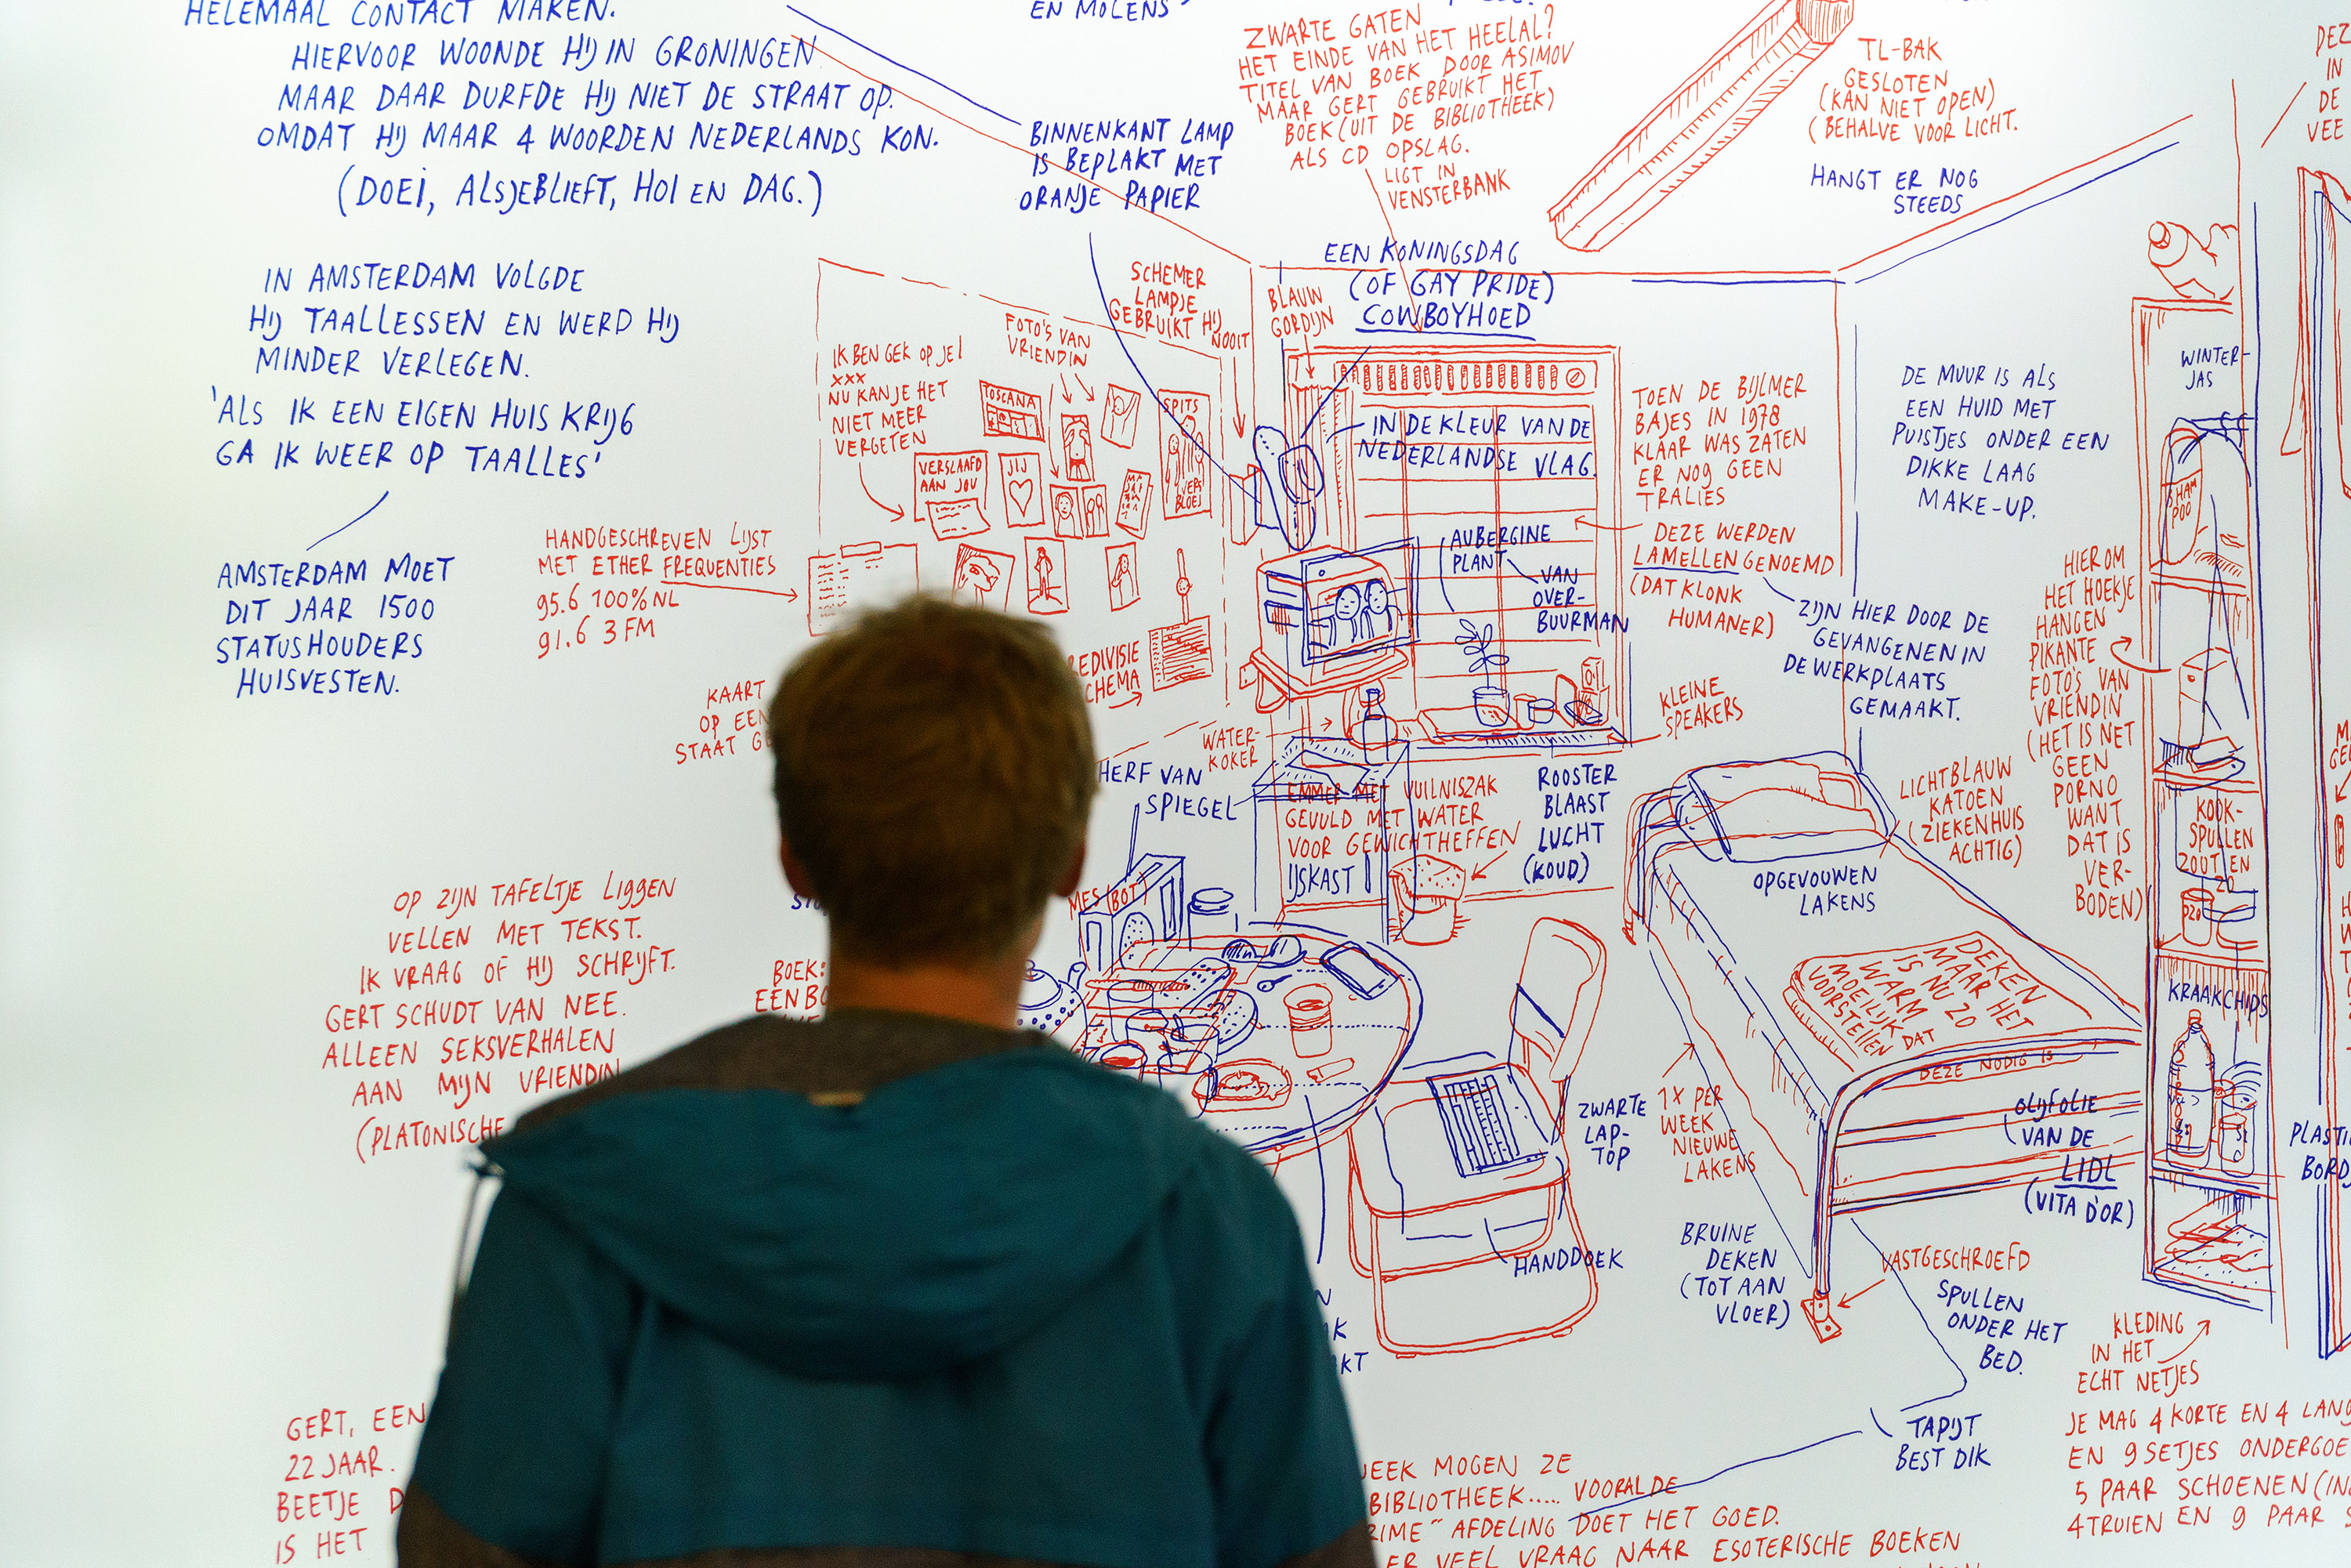 HELEMAAL CONTACT MAKEN.
HIERVOOR WOONDE HIJ IN GRONINGEN
MAAR DAAR DURFDE HIJ NIET DE STRAAT OP.
OMDAT HIJ MAAR 4 WOORDEN NEDERLANDS KON.
(DOEI, ALSJEBLIEFT, HOI EN DAG.)
IN AMSTERDAM VOLGDE
HIJ TAALLESSEN EN WERD HIJ
MINDER VERLEGEN.
'ALS IK EEN EIGEN HUIS KRIJG
GA IK WEER OP TAALLES'
AMSTERDAM MOET
DIT JAAR 1500
STATUSHOUDERS
HUISVESTEN.
HANDGESCHREVEN LIJST
MET ETHER FREQUENTIES
95.6 100% NL
91.6 3 FM
KAART
OP EEN
STAAT
OP ZIJN TAFELTJE LIGGEN
VELLEN MET TEKST.
IK VRAAG OF HIJ SCHRIJFT.
GERT SCHUDT VAN NEE.
ALLEEN SEKSVERHALEN
AAN MIJN VRIENDIN
(PLATONISCHE
GERT, EEN
22 JAAR.
BEETJE
IS HET
EN MOLENS
BINNENKANT LAMP
IS BEPLAKT MET
ORANJE PAPIER
ZWARTE GATEN
HET EINDE VAN HET HEELAL?
TITEL VAN BOEK DOOR ASIMOV
MAAR GERT GEBRUIKT HET
BOEK (UIT DE BIBLIOTHEEK)
ALS CD OPSLAG.
LIGT IN
VENSTERBANK
TL-BAK
GESLOTEN
(KAN NIET OPEN)
(BEHALVE VOOR LICHT.
HANGT ER NOG
STEEDS
IN
DE
VEE
EEN KONINGSDAG
(OF GAY PRIDE)
COWBOYHOED
SCHEMER
LAMPJE
GEBRUIKT HIJ
NOOIT
BLAUW
GORDIJN
IN DE KLEUR VAN DE
NEDERLANDSE VLAG.
FOTO'S VAN
VRIENDIN
IK BEN GEK OP JE!
XXX
NU KAN JE HET
NIET MEER
VERGETEN
TOSCANA
SPITS
VERSLAAFD
AAN JOU
JIJ
TOEN DE BIJLMER
BAJES IN 1978
KLAAR WAS ZATEN
ER NOG GEEN
TRALIES
DEZE WERDEN
LAMELLEN GENOEMD
(DAT KLONK
HUMANER)
ZIJN HIER DOOR DE
GEVANGENEN IN
DE WERKPLAATS
GEMAAKT.
DE MUUR IS ALS
EEN HUID MET
PUISTJES ONDER EEN
DIKKE LAAG
MAKE-UP.
AUBERGINE
PLANT
VAN
OVER-
BUURMAN
KLEINE
SPEAKERS
WATER-
KOKER
REDIVISIE
CHEMA
HERF VAN
SPIEGEL
EMMER MET VUILNISZAK
GEVULD MET WATER
VOOR GEWICHTHEFFEN
IJSKAST
ROOSTER
BLAAST
LUCHT
(KOUD)
MES (BOT)
BOEK:
LICHTBLAUW
KATOEN
(ZIEKENHUIS
ACHTIG)
OPGEVOUWEN
LAKENS
DEKEN
MAAR HET
IS NU ZO
WARM
MOEILIJK DAT
VOORSTELLEN
DEZE NODIG IS
ZWARTE
LAP-
TOP
1X PER
WEEK
NIEUWE
LAKENS
HANDDOEK
BRUINE
DEKEN
(TOT AAN
VLOER)
VASTGESCHROEFD
SPULLEN
ONDER HET
BED.
TAPIJT
BEST DIK
WINTER-
JAS
SHAM
POO
HIER OM
HET HOEKJE
HANGEN
PIKANTE
FOTO'S VAN
VRIENDIN
(HET IS NET
GEEN
PORNO
WANT
DAT IS
VER-
BODEN)
KOOK-
SPULLEN
ZOUT EN
ZO
KRAAKCHIPS
OLIJFOLIE
VAN DE
LIDL
(VITA D'OR)
KLEDING
IN HET
ECHT NETJES
JE MAG 4 KORTE EN 4
EN 9 SETJES
5 PAAR SCHOENEN
4 TRUIEN EN 9 PAAR
WEEK MOGEN ZE
BIBLIOTHEEK..... VOORAL DE
RIME" AFDELING DOET HET GOED.
ER VEEL VRAAG NAAR ESOTERISCHE BOEKEN